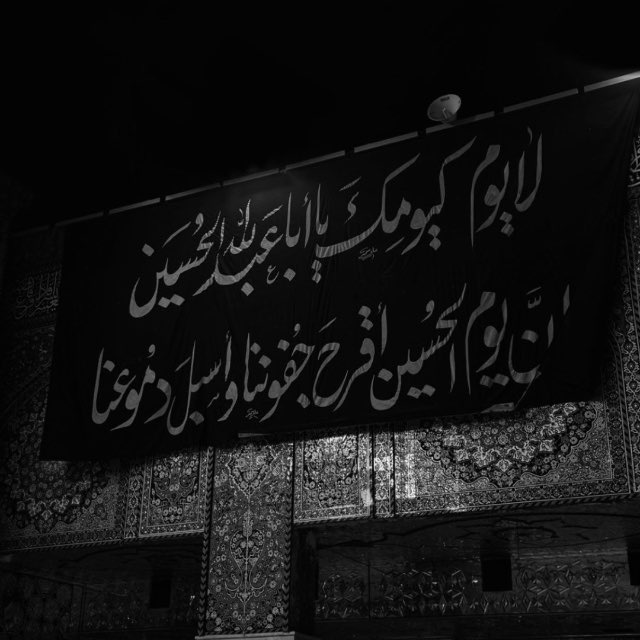 لا يوم كيومك يا أبا عبدالله الحسين
إنَّ يوم الحسين أقرح جفوننا وأسبل دموعنا